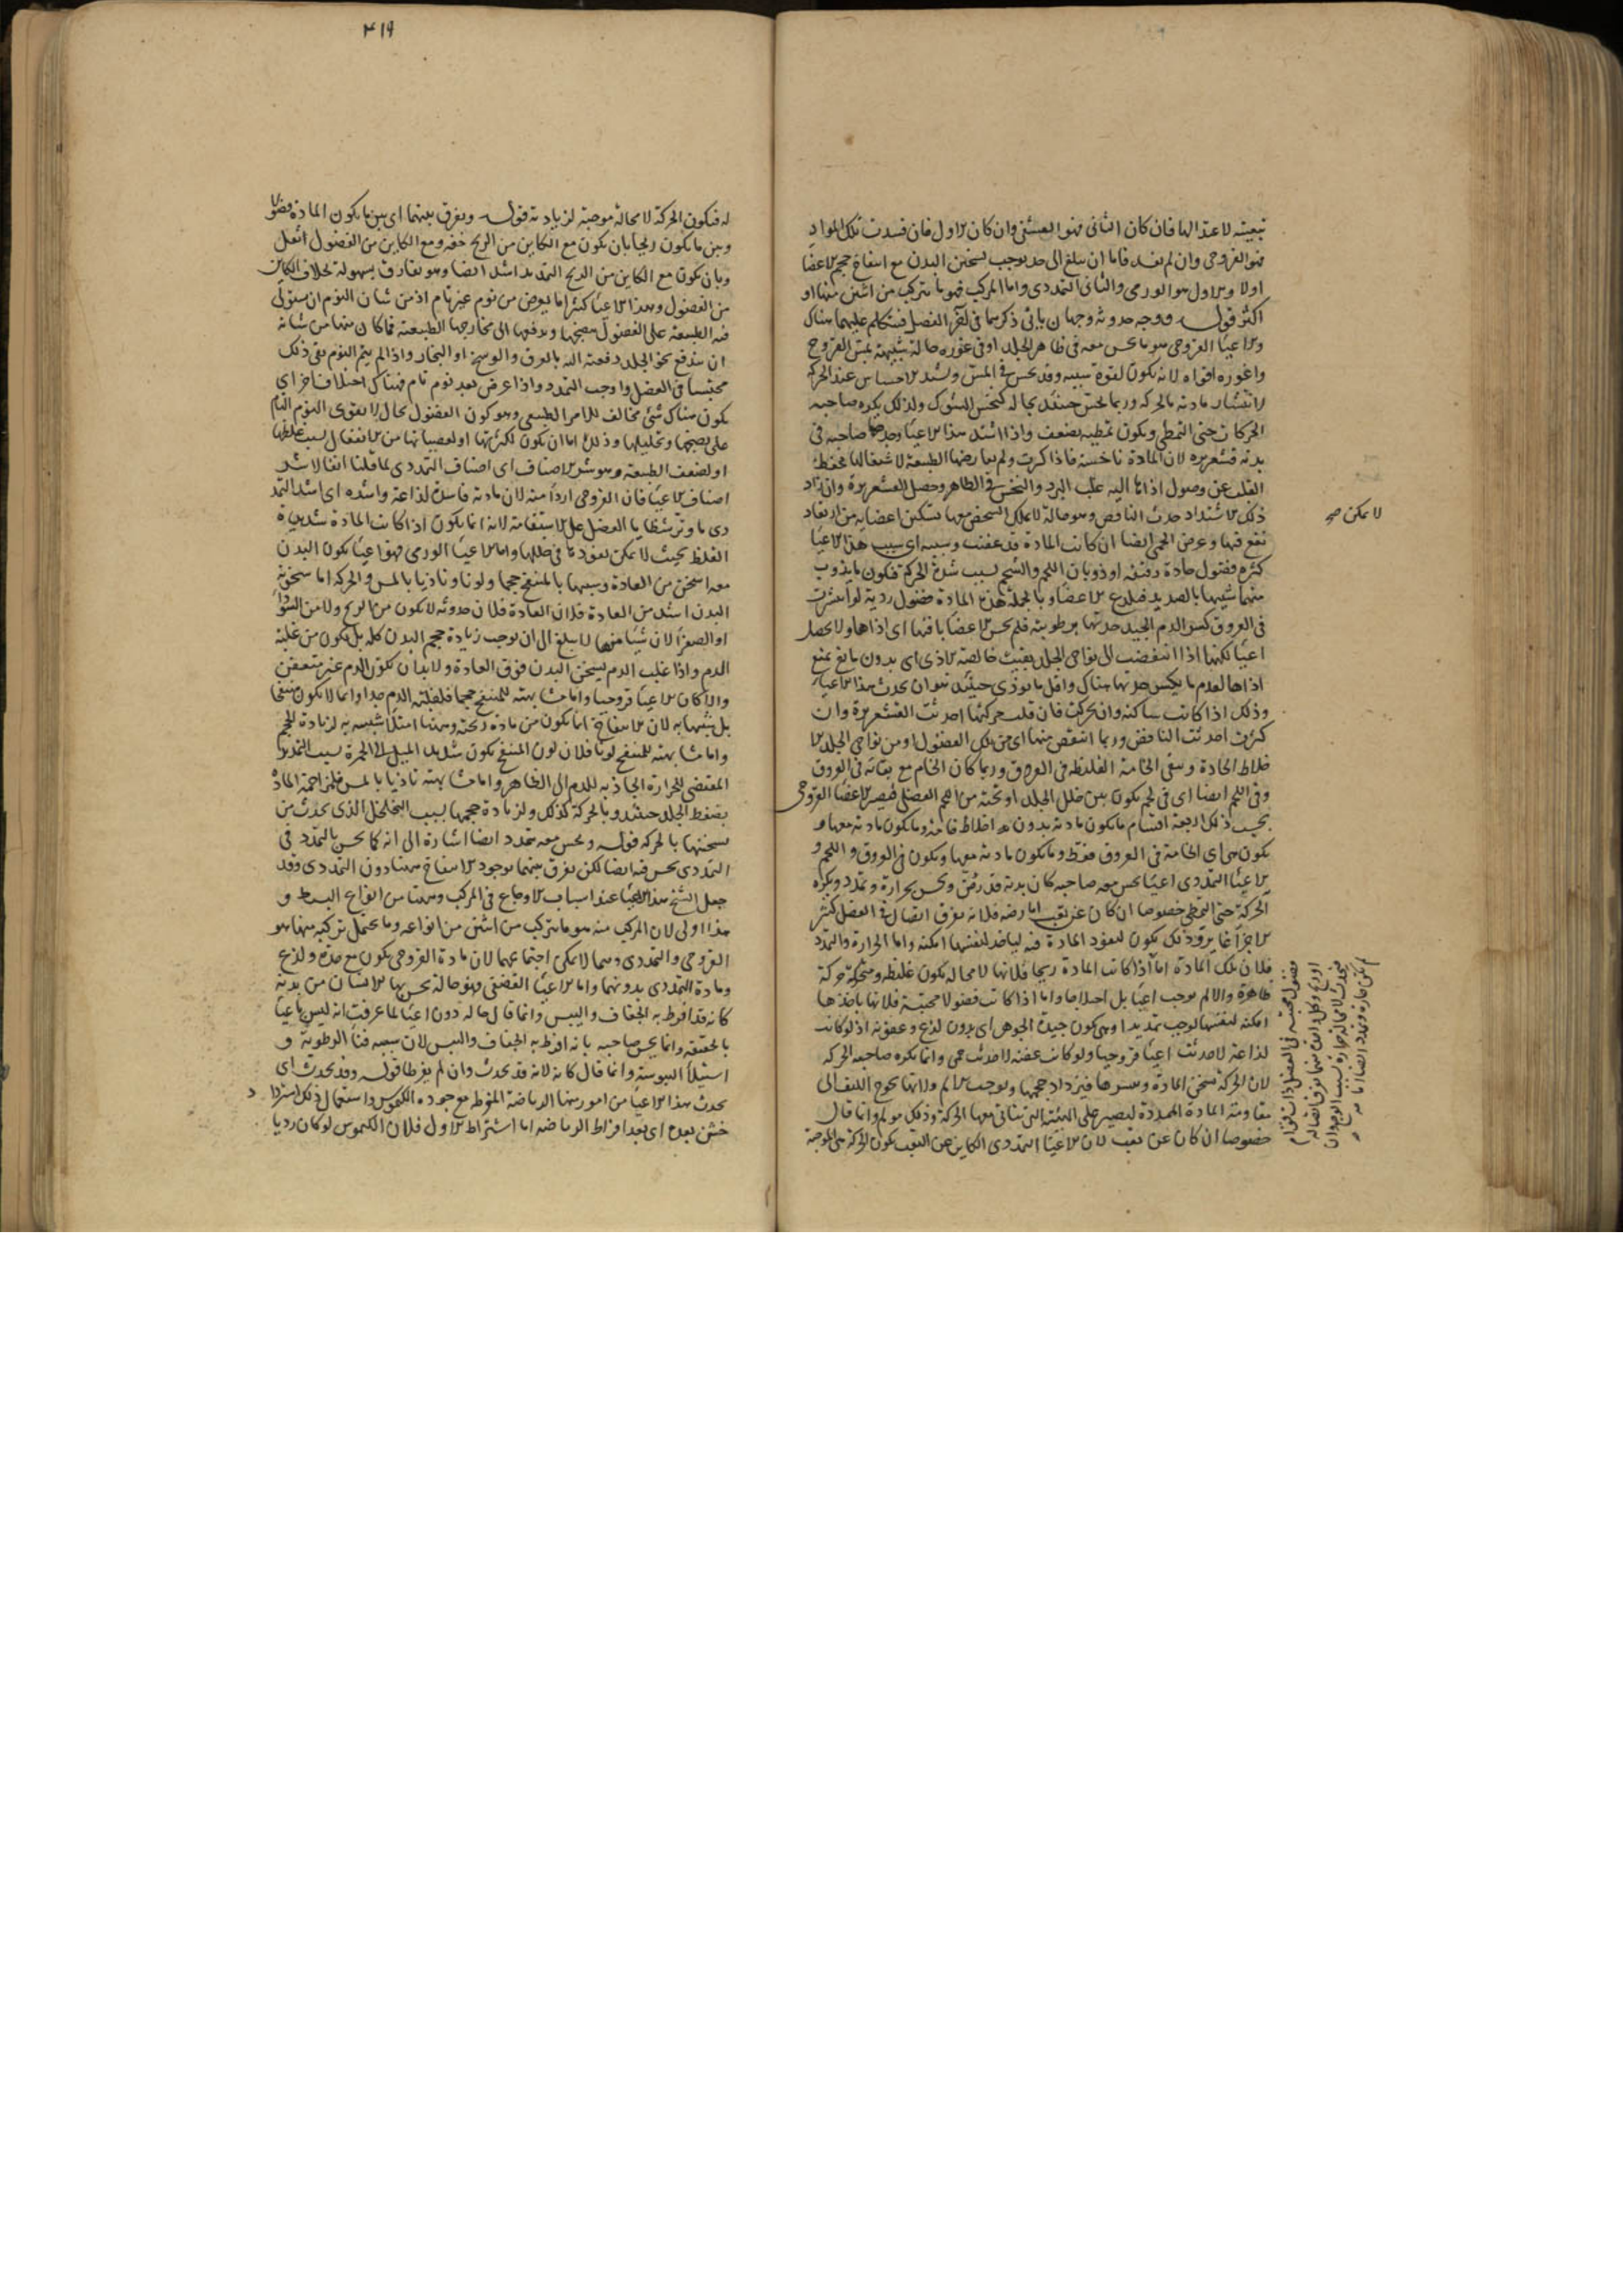 تبعيته لاعتدالها فان كان الثاني فهو القشفي وان كان الاول فان فسدت تلك المواد
فهو القروحي وان لم تفسد فاما ان تبلغ الى حد يوجب تسخين البدن مع انتفاخ حجم الاعضا
اولا والاول هو الورمي والثاني التمددي واما المركب فهو ما يتركب من اثنين منها او
اكثر قوله ووجه حدوثه وجهان ياتي ذكرهما في الفصل فنتكلم عليهما هناك
والاعيا القروحي هو ما يحس معه في ظاهر الجلد او في غوره حالة شبيهة بمس القروح
واغوره اقواه لانه يكون لقوة سببه وقد يحس في المس ويشتد الاحساس عند الحركة
لانتشار مادته بالحركة وربما يحس حينئذ بحالة كنخس الشوك ولذلك يكره صاحبه
الحركات حتى التمطي ويكون تمطيه بضعف واذا اشتد هذا الاعيا وجد صاحبه في
بدنه قشعريرة لان المادة ناخسة فاذا كثرت ولم تعارضها الطبيعة لاشتغالها بحفظ
القلب عن وصول اذاها اليه غلب البرد والنخس في الظاهر وحصل القشعريرة وان زاد
ذلك الاشتداد حدث النافض وهو حالة لا يملك الشخص معها تسكين اعضايه من ارتعاد
تقع فيها وعرض الحمى ايضا ان كانت المادة قد عفنت وسببه اي سبب هذا الاعيا
كثرة فضول حادة رقيقة او ذوبان اللحم والشحم بسبب شدة الحركة فيكون ما يذوب
منهما شبيها بالصديد فيلذع الاعضا وبالجملة هذه المادة فضول ردية لو انتشرت
في العروق كسر الدم الجيد حدتها برطوبته فلم يحس الاعضا بافتها اي اذاها ولا يحصل
اعيا لكنها اذا انتفضت الى نواحي الجلد بقيت خالصة الاذى اي بدون مانع يمنع
اذاها لعدم ما يكسر حدتها هناك واقل ما يوذي حينئذ هو ان يحدث هذا الاعيا
وذلك اذا كانت ساكنة وان تحركت فان قلت حركتها احدثت القشعريرة وان
كثرت احدثت النافض وربما انتقص منها اي من تلك الفضول او من نواحي الجلد الا
خلاط الحادة وبقي الخامة الغليظة في العروق وربما كان الخام مع بقائه في العروق
وفي اللحم ايضا اي في لحم يكون بين خلل الجلد او تحته من اللحم العضلي فيصير الاعضا القروحي
بحسب ذلك اربعة اقسام ما يكون مادته بدون اخلاط خامة وما يكون مادته معها و
يكون هي اي الخامة في العروق فقط وما يكون مادته معها ويكون في العروق واللحم و
الاعيا التمددي اعيا يحس معه صاحبه كان بدنه قد رض ويحس بحرارة وتمدد ويكره
الحركة حتى التمطي خصوصا ان كان عن تعب اما رضه فلانه تفرق اتصال في العضل كثير
الاجزاء غايرة وذلك يكون لنفوذ المادة فيه لياخذ لنفسها امكنة واما الحرارة والتمدد
فلان تلك المادة اما اذا كانت المادة ريحا فلانها لا محالة يكون غليظة ومتحركة حركة
ظاهرة والا لم يوجب اعيا بل اختلاجا واما اذا كانت فضولا محتبسة فلانها باخذها
امكنة لنفسها يوجب تمديدا وهي يكون جيدة الجوهر اي بدون لذع وعفونة اذ لو كانت
لذاعة لاحدثت اعيا قروحيا ولو كانت عفنة لاحدثت حمى وانما يكره صاحبه الحركة
لان الحركة تسخن المادة فيزداد حجمها ويوجب الالم ولانها تحوج الليف الى
مقاومة المادة الممددة ليصير على الهيئة التي يتاتى معها الحركة وذلك مولم وانما قال
خصوصا ان كان عن تعب لان الاعيا التمددي الكاين عن التعب يكون الحركة هي الموجبة
لا يمكن صح
فضول محتبسة في العضل
٤١٩
له فيكون الحركة لا محالة موجبة لزيادته قوله ويفرق بينهما اي بين ما يكون المادة فضولا
وبين ما يكون ريحا بان يكون مع الكاين من الريح خفة ومع الكاين من الفضول اثقل
وبان يكون مع الكاين من الريح التمديد اشد ايضا وهو يفارق بسهولة بخلاف الكاين
من الفضول وهذا الاعيا كثيرا ما يعرض من نوم غير تام اذ من شان النوم ان يستولي
فيه الطبيعة على الفضول ينضجها ويدفعها الى مخارجها الطبيعية فما كان منها من شانه
ان يندفع نحو الجلد دفعته اليه بالعرق والوسخ او البخار واذا لم يتم النوم بقي ذلك
محتبسا في العضل واوجب التمدد واذا عرض بعد نوم تام فهناك اختلاف اخر اي
يكون هناك شئ مخالف للامر الطبيعي وهو كون الفضول بحال لا يقوى النوم التام
على نضجها وتحليلها وذلك اما ان يكون لكثرتها او لعصيانها من الانفعال لسبب غلظها
او لضعف الطبيعة وهو شر الاصناف اي اصناف التمددي لما قلنا انفا لا شر
اصناف الاعيا فان القروحي اردا منه لان مادته فاسدة لذاعة واشده اي اشد التمد
دي ما وتر شظايا العضل على الاستقامة لانه انما يكون اذا كانت المادة شديدة
الغلظ بحيث لا يمكن نفوذها في خللها واما الاعيا الورمي فهو اعيا يكون البدن
معه اسخن من العادة وشبيها بالمنتفخ حجما ولونا وتاذيا بالمس والحركة اما سخونة
البدن اشد من العادة فلان العادة فلان حدوثه لا يكون من الريح ولا من السودا
او الصفرا لان شيئا منها لا يبلغ الى ان يوجب زيادة حجم البدن كله بل يكون من غلبة
الدم واذا غلب الدم يسخن البدن فوق العادة ولا بد ان يكون الدم غير متعفن
والا كان الاعيا قروحيا واما مشابهته للمنتفخ حجما فلغلبة الدم جدا وانما لا يكون منتفخا
بل شبيها به لان الانتفاخ انما يكون من مادة ريحية وههنا امتلاء شبيه به لزيادة الحجم
واما مشابهته للمنتفخ لونا فلان لون المنتفخ يكون شديد الميل الى الحمرة بسبب التمدد
المقتضي للحرارة الجاذبة للدم الى الظاهر واما مشابهته تاذيا بالمس فلمزاحمة المادة
بضغط الجلد حينئذ وبالحركة كذلك ولزيادة حجمها بسبب التخلخل الذي يحدث من
سخنتها بالحركة قوله ويحس معه بتمدد ايضا اشارة الى انه كما يحس بالتمدد في
التمددي يحس فيه ايضا لكن يفرق بينهما بوجود الانتفاخ ههنا دون التمددي وقد
جعل الشيخ هذا الاعيا عند اسباب الاوجاع في المركب وههنا من انواع البسيط و
هذا اولى لان المركب منه هو ما يتركب من اثنين من انواعه وما يحتمل تركيبه منهما هو
القروحي والتمددي وهما لا يمكن اجتماعهما لان مادة القروحي يكون مع حدة ولذع
ومادة التمددي بدونهما واما الاعيا القشفي وهو حالة يحس بها الانسان من بدنه
كانه قد افرط به الجفاف واليبس وانما قال حالة دون اعيا لما عرفت انه ليس باعيا
بالحقيقة وانما يحس صاحبه بانه افرط به الجفاف واليبس لان سببه فنا الرطوبة و
استيلا اليبوسة وانما قال كانه لانه قد يحدث وان لم يفرط قوله وقد يحدث اي
يحدث هذا الاعيا من امور منها الرياضة المفرطة مع جودة الكيموس واستعمال ذلك استردا د
خشن بعده اي بعد افراط الرياضة اما اشتراط الاول فلان الكيموس لو كان رديا